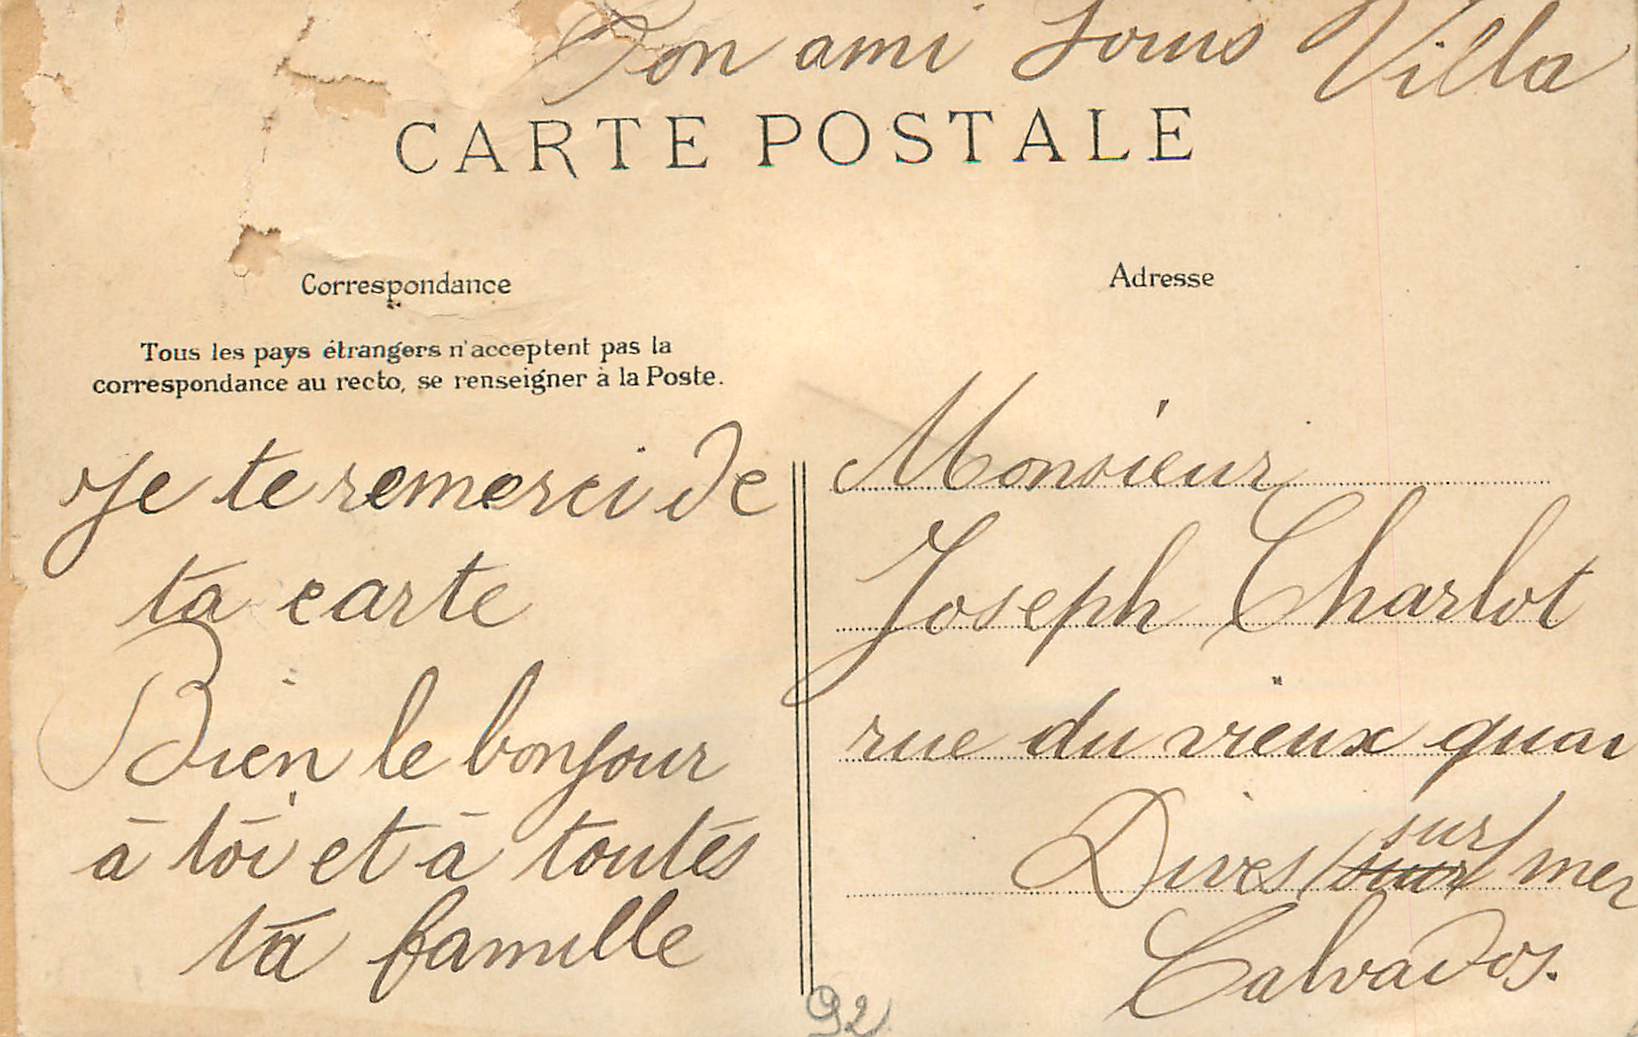 Ton ami Louis Villa
CARTE POSTALE
Correspondance
Tous les pays étrangers n'acceptent pas la
correspondance au recto, se renseigner à la Poste.
Je te remerci de
ta carte
Bien le bonjour
à toi et à toutes
ta famille
Adresse
Monsieur
Joseph Charlot
rue du vieux quai
Dives / sur / mer
Calvados.
92